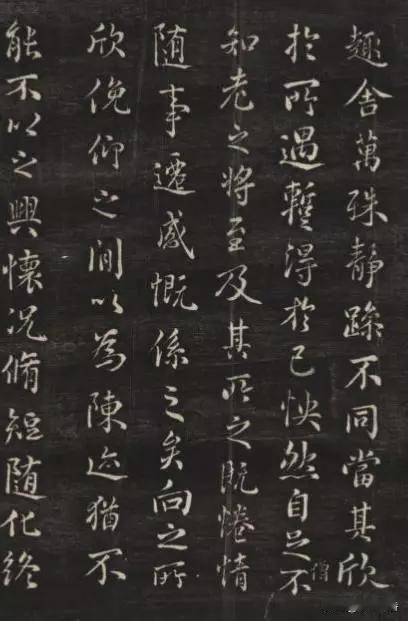 趣舍萬殊靜躁不同當其欣
於所遇蹔得於己怏然自足不
僧
知老之將至及其所之既惓情
隨事遷感慨係之矣向之所
欣俛仰之閒以為陳迹猶不
能不以之興懷况脩短隨化終